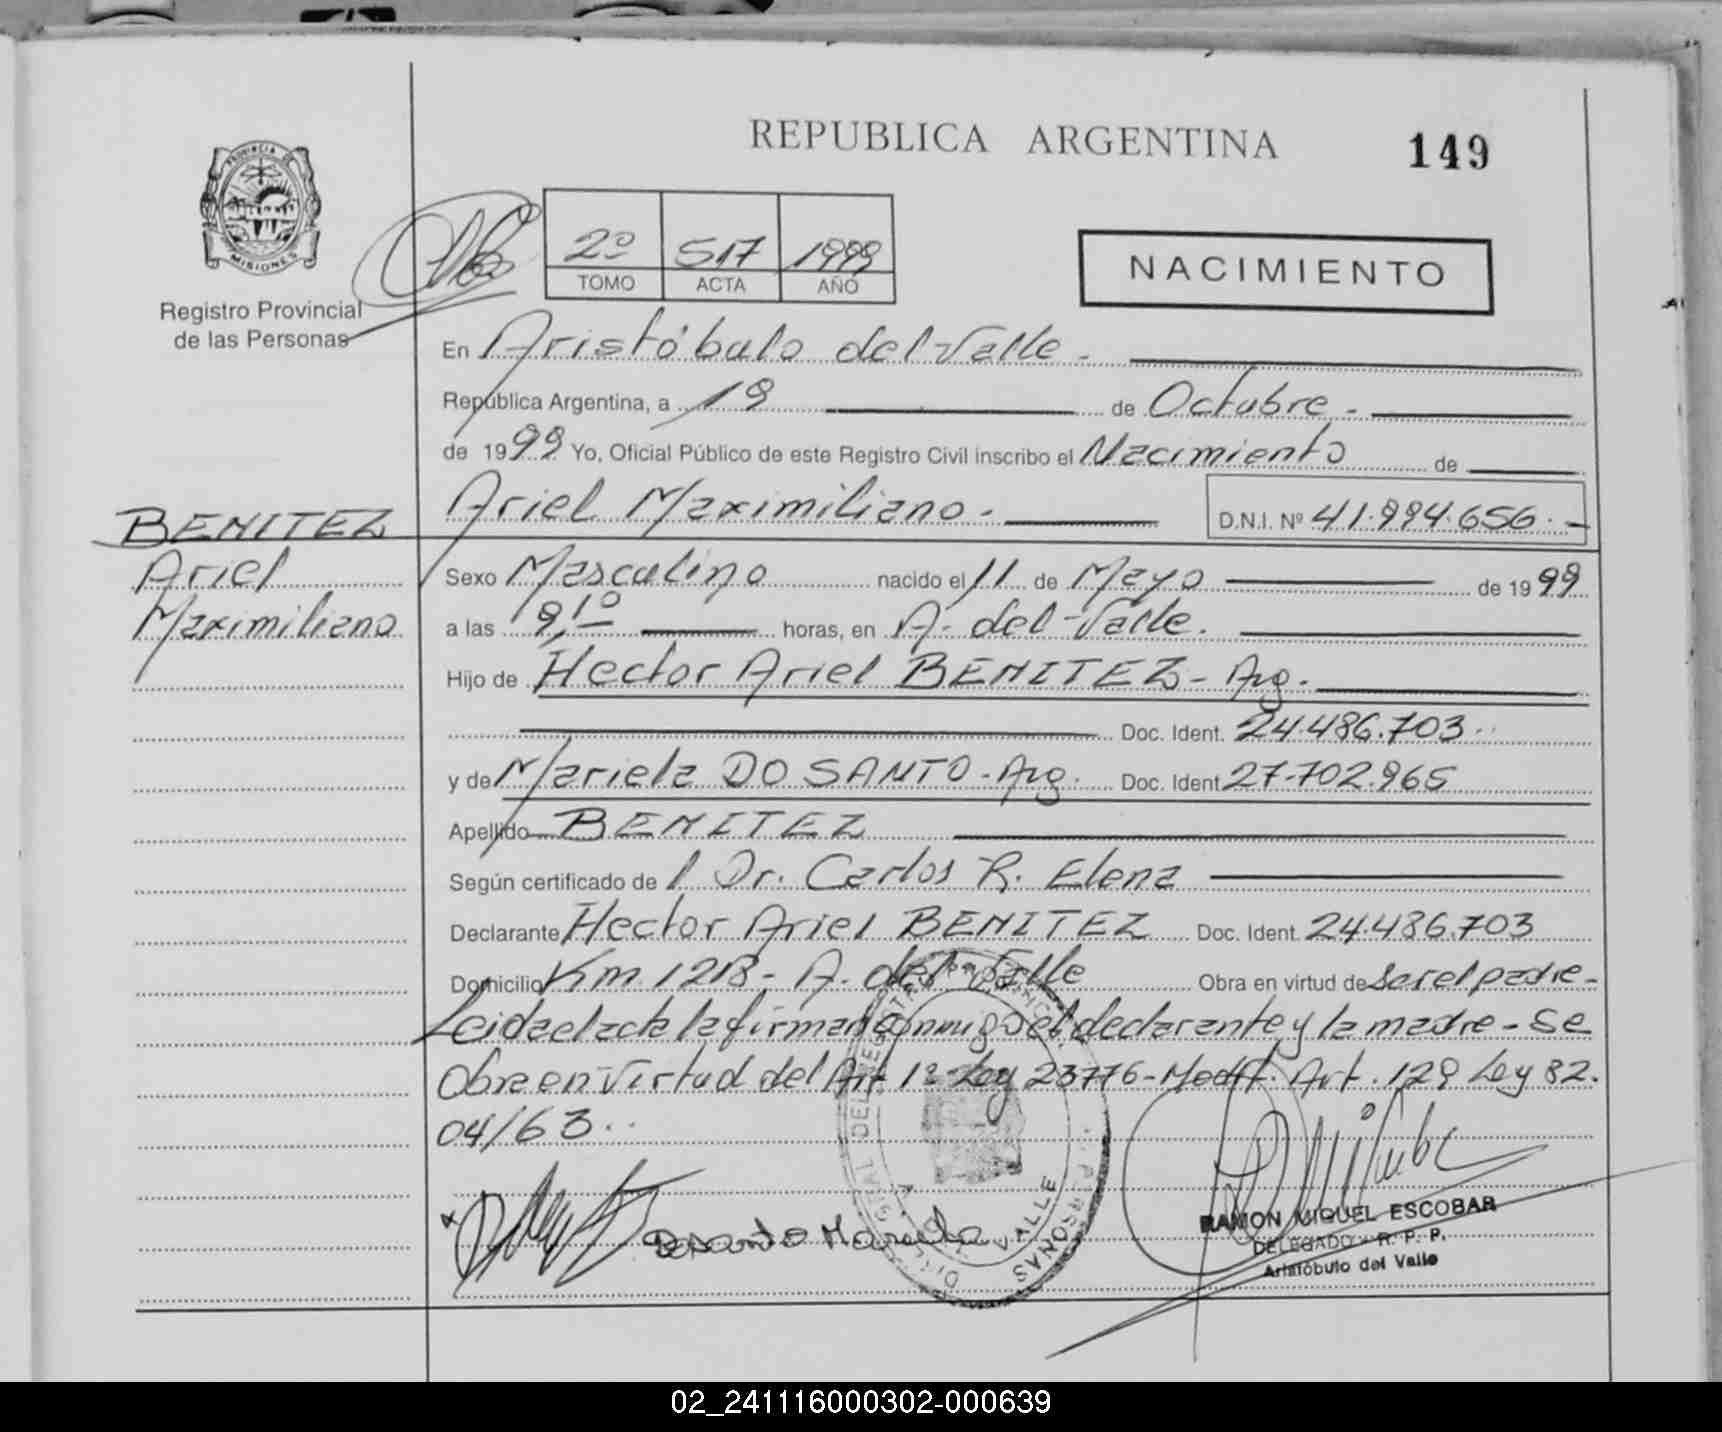 REPUBLICA ARGENTINA
149
PROVINCIA DE
MISIONES
Registro Provincial
de las Personas
2º 517 1999
TOMO ACTA AÑO
NACIMIENTO
En Aristóbulo del Valle.
República Argentina, a 19 de Octubre.
de 1999 Yo, Oficial Público de este Registro Civil inscribo el Nacimiento de
Ariel Maximiliano. D.N.I. Nº 41.994.656.
BENITEZ
Ariel
Maximiliano
Sexo Masculino nacido el 11 de Mayo de 1999
a las 9,10 horas, en A. del Valle.
Hijo de Hector Ariel BENITEZ - Arg.
Doc. Ident. 24.486.703..
y de Mariela DO SANTO - Arg. Doc. Ident. 27.702.965
Apellido BENITEZ
Según certificado de l Dr. Carlos R. Elena
Declarante Hector Ariel BENITEZ Doc. Ident. 24.486.703
Domicilio Km. 1213 - A. del Valle Obra en virtud de ser el padre -
Leida el acta la firman conmigo el declarante y la madre - Se
Obra en Virtud del Art 1º Ley 23776 - Modif. Art. 129 Ley 82.
04/63..
Dosanto Mariela
RAMON MIGUEL ESCOBAR
DELEGADO - R. P. P.
Aristóbulo del Valle
02_241116000302-000639